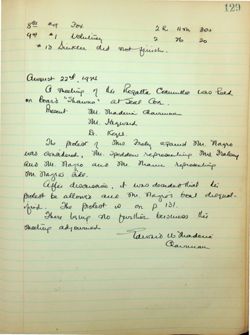 129
8th #9 Fox 2 R 11m 30s
9th #1 2 76 20
* 13 Sunken did not finish.
August 22nd, 1974
A meeting of the Regatta Committee was held
on board "Thauma" at Seal Cove.
Present Mr. Madeira Chairman
Mr. Hayward
Dr. Keyes
The protest of Mrs against Mr. Magro
was considered, Mr. representing Mrs
and Mr. Magro and Mr. representing
Mr. Magro's side.
After discussion, it was decided that the
protest be allowed and Mr. Magro's boat disqual-
ified. The protest is on p 131.
There being no further business the
meeting adjourned.
W Madeira
Chairman